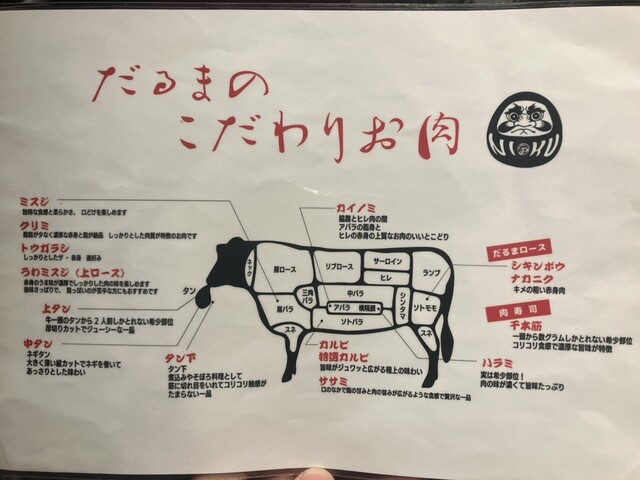 だるまの
こだわりお肉
NIKU
ミスジ
独特な食感と柔らかさ、口どけを楽しめます
クリミ
脂肪が少なく濃厚な赤身と脂が絶品 しっかりとした肉質が特徴のお肉です
トウガラシ
しっかりとしたザ・赤身 通好み
うわミスジ（上ロース）
赤身のうま味が濃厚でしっかりした肉の味を楽しめます
後味さっぱりで、脂っぽいのが苦手な方にもおすすめです
上タン
牛一頭のタンから2人前しかとれない希少部位
厚切りカットでジューシーな一品
中タン
ネギタン
大きく薄い縦カットでネギを巻いて
あっさりとした味わい
タン下
タン下
煮込みやそぼろ料理として
筋に切れ目をいれてコリコリ触感が
たまらない一品
カイノミ
脇腹とヒレ肉の間
アバラの脂身と
ヒレの赤身の上質なお肉のいいとこどり
タン
ネック
肩ロース
リブロース
サーロイン
ヒレ
ランプ
三角バラ
中バラ
アバラ
横隔膜
シンタマ
ソトモモ
肩バラ
ソトバラ
スネ
スネ
カルビ
特選カルビ
旨味がジュワッと広がる極上の味わい
ササミ
口のなかで脂の甘みと肉の旨みが広がるような食感で贅沢な一品
だるまロース
シキンボウ
ナカニク
キメの粗い赤身肉
肉寿司
千本筋
一頭から数グラムしかとれない希少部位
コリコリ食感で濃厚な旨味が特徴
ハラミ
実は希少部位！
肉の味が濃くて旨味たっぷり